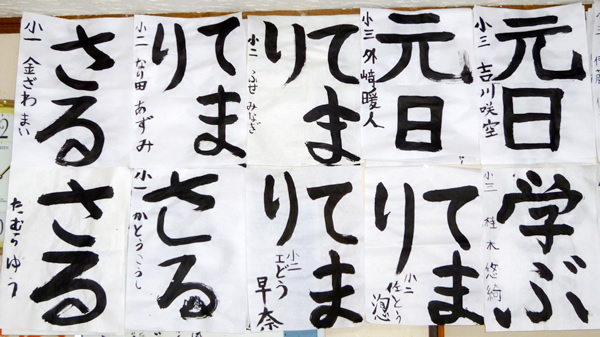 元日
小三 吉川咲空
元日
小三 外﨑暖人
てま
り
小二 ふせ みなぎ
てま
り
小二 なり田 あずみ
さる
小一 金ざわ まい
学ぶ
小三 桂木悠綺
てま
り
小二 佐とう
てま
り
小二 工どう 早奈
さる
小一 かとうこうし
さる
たむらゆう